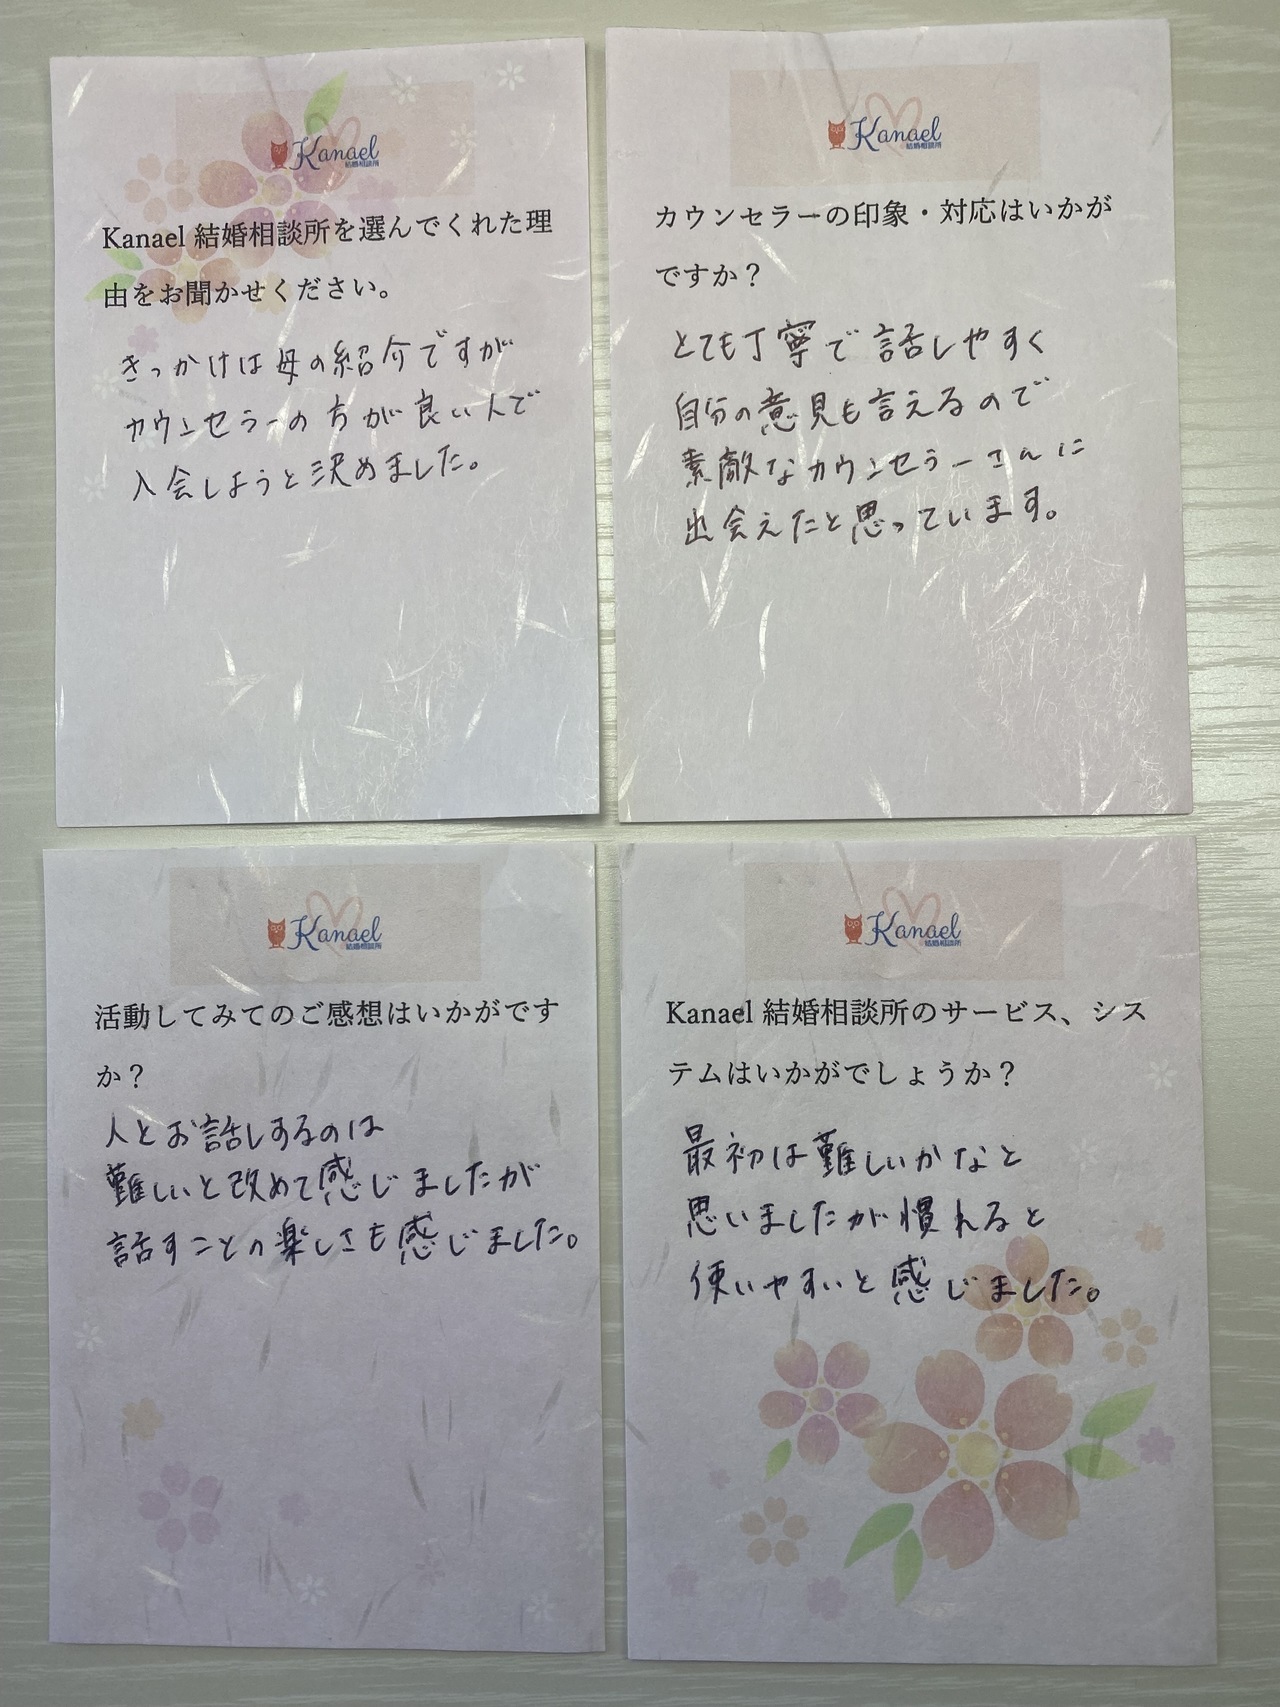 Kanael
結婚相談所
Kanael 結婚相談所を選んでくれた理
由をお聞かせください。
きっかけは母の紹介ですが
カウンセラーの方が良い人で
入会しようと決めました。
Kanael
結婚相談所
カウンセラーの印象・対応はいかが
ですか？
とても丁寧で話しやすく
自分の意見も言えるので
素敵なカウンセラーさんに
出会えたと思っています。
Kanael
結婚相談所
活動してみてのご感想はいかがです
か？
人とお話しするのは
難しいと改めて感じましたが
話すことの楽しさも感じました。
Kanael
結婚相談所
Kanael 結婚相談所のサービス、シス
テムはいかがでしょうか？
最初は難しいかなと
思いましたが慣れると
使いやすいと感じました。